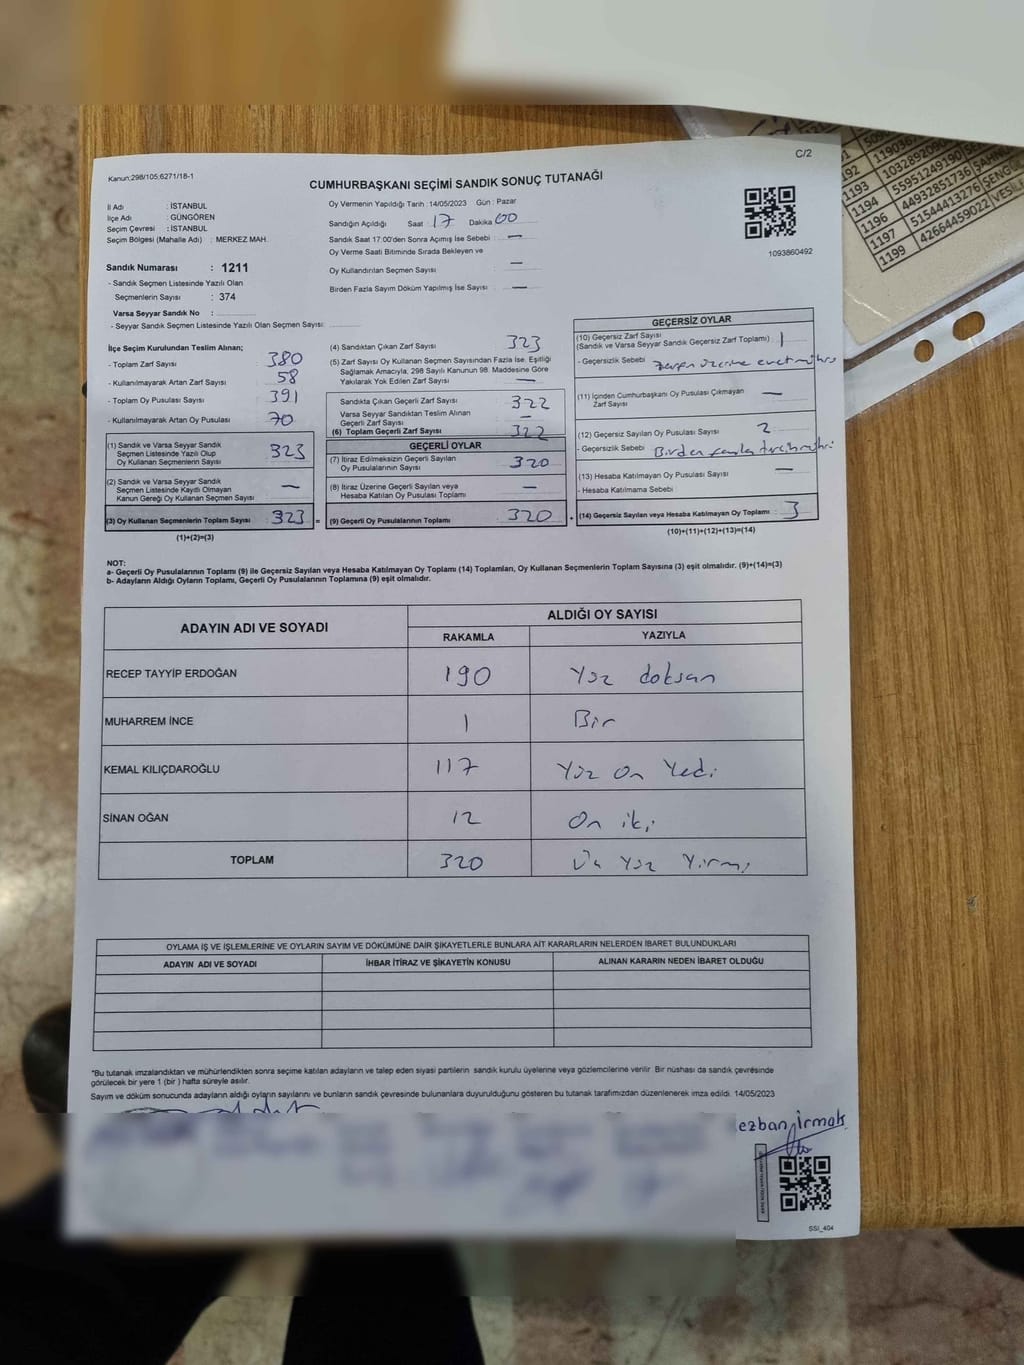 C/2
Kanun:298/105;6271/18-1
CUMHURBAŞKANI SEÇİMİ SANDIK SONUÇ TUTANAĞI
İl Adı : İSTANBUL
İlçe Adı : GÜNGÖREN
Seçim Çevresi : İSTANBUL
Seçim Bölgesi (Mahalle Adı) : MERKEZ MAH.
Sandık Numarası : 1211
- Sandık Seçmen Listesinde Yazılı Olan
Seçmenlerin Sayısı : 374
Varsa Seyyar Sandık No :
- Seyyar Sandık Seçmen Listesinde Yazılı Olan Seçmen Sayısı:
Oy Vermenin Yapıldığı Tarih : 14/05/2023 Gün : Pazar
Sandığın Açıldığı Saat 17 Dakika 00
Sandık Saat 17:00'den Sonra Açımış İse Sebebi : —
Oy Verme Saati Bitiminde Sırada Bekleyen ve
Oy Kullandırılan Seçmen Sayısı —
Birden Fazla Sayım Döküm Yapılmış İse Sayısı : —
1093860492
İlçe Seçim Kurulundan Teslim Alınan;
- Toplam Zarf Sayısı : 380
- Kullanılmayarak Artan Zarf Sayısı : 58
- Toplam Oy Pusulası Sayısı : 391
- Kullanılmayarak Artan Oy Pusulası : 70
(1) Sandık ve Varsa Seyyar Sandık
Seçmen Listesinde Yazılı Olup
Oy Kullanan Seçmenlerin Sayısı : 323
(2) Sandık ve Varsa Seyyar Sandık
Seçmen Listesinde Kaydı Olmayan
Kanun Gereği Oy Kullanan Seçmen Sayısı : —
(3) Oy Kullanan Seçmenlerin Toplam Sayısı : 323 =
(1)+(2)=(3)
(4) Sandıktan Çıkan Zarf Sayısı : 323
(5) Zarf Sayısı Oy Kullanan Seçmen Sayısından Fazla İse, Eşitliği
Sağlamak Amacıyla, 298 Sayılı Kanunun 98. Maddesine Göre
Yakılarak Yok Edilen Zarf Sayısı : —
Sandıkta Çıkan Geçerli Zarf Sayısı : 322
Varsa Seyyar Sandıktan Teslim Alınan
Geçerli Zarf Sayısı : —
(6) Toplam Geçerli Zarf Sayısı : 322
GEÇERLİ OYLAR
(7) İtiraz Edilmeksizin Geçerli Sayılan
Oy Pusulalarının Sayısı : 320
(8) İtiraz Üzerine Geçerli Sayılan veya
Hesaba Katılan Oy Pusulası Toplamı : —
(9) Geçerli Oy Pusulalarının Toplamı : 320 +
GEÇERSİZ OYLAR
(10) Geçersiz Zarf Sayısı
(Sandık ve Varsa Seyyar Sandık Geçersiz Zarf Toplamı) : 1
- Geçersizlik Sebebi : Zarfın üzerine evet mührü
(11) İçinden Cumhurbaşkanı Oy Pusulası Çıkmayan
Zarf Sayısı : —
(12) Geçersiz Sayılan Oy Pusulası Sayısı : 2
- Geçersizlik Sebebi : Birden fazla tercih mührü
(13) Hesaba Katılmayan Oy Pusulası Sayısı : —
- Hesaba Katılmama Sebebi :
(14) Geçersiz Sayılan veya Hesaba Katılmayan Oy Toplamı : 3
(10)+(11)+(12)+(13)=(14)
NOT:
a- Geçerli Oy Pusulalarının Toplamı (9) ile Geçersiz Sayılan veya Hesaba Katılmayan Oy Toplamı (14) Toplamları, Oy Kullanan Seçmenlerin Toplam Sayısına (3) eşit olmalıdır. (9)+(14)=(3)
b- Adayların Aldığı Oyların Toplamı, Geçerli Oy Pusulalarının Toplamına (9) eşit olmalıdır.
ADAYIN ADI VE SOYADI ALDIĞI OY SAYISI
RAKAMLA YAZIYLA
RECEP TAYYİP ERDOĞAN 190 Yüz doksan
MUHARREM İNCE 1 Bir
KEMAL KILIÇDAROĞLU 117 Yüz on Yedi
SİNAN OĞAN 12 On iki
TOPLAM 320 Üç Yüz Yirmi
OYLAMA İŞ VE İŞLEMLERİNE VE OYLARIN SAYIM VE DÖKÜMÜNE DAİR ŞİKAYETLERLE BUNLARA AİT KARARLARIN NELERDEN İBARET BULUNDUKLARI
ADAYIN ADI VE SOYADI İHBAR İTİRAZ VE ŞİKAYETİN KONUSU ALINAN KARARIN NEDEN İBARET OLDUĞU
"Bu tutanak imzalandıktan ve mühürlendikten sonra seçime katılan adayların ve talep eden siyasi partilerin sandık kurulu üyelerine veya gözlemcilerine verilir. Bir nüshası da sandık çevresinde
görülecek bir yere 1 (bir ) hafta süreyle asılır.
Sayım ve döküm sonucunda adayların aldığı oyların sayılarını ve bunların sandık çevresinde bulunanlara duyurulduğunu gösteren bu tutanak tarafımızdan düzenlenerek imza edildi. 14/05/2023
ezban irmak
SSI_404
1193
1194
1196
1197
1199
10328920
55951249190
44932851736 ŞAHİN
51544413276 ŞENG
42664459022 VESİL